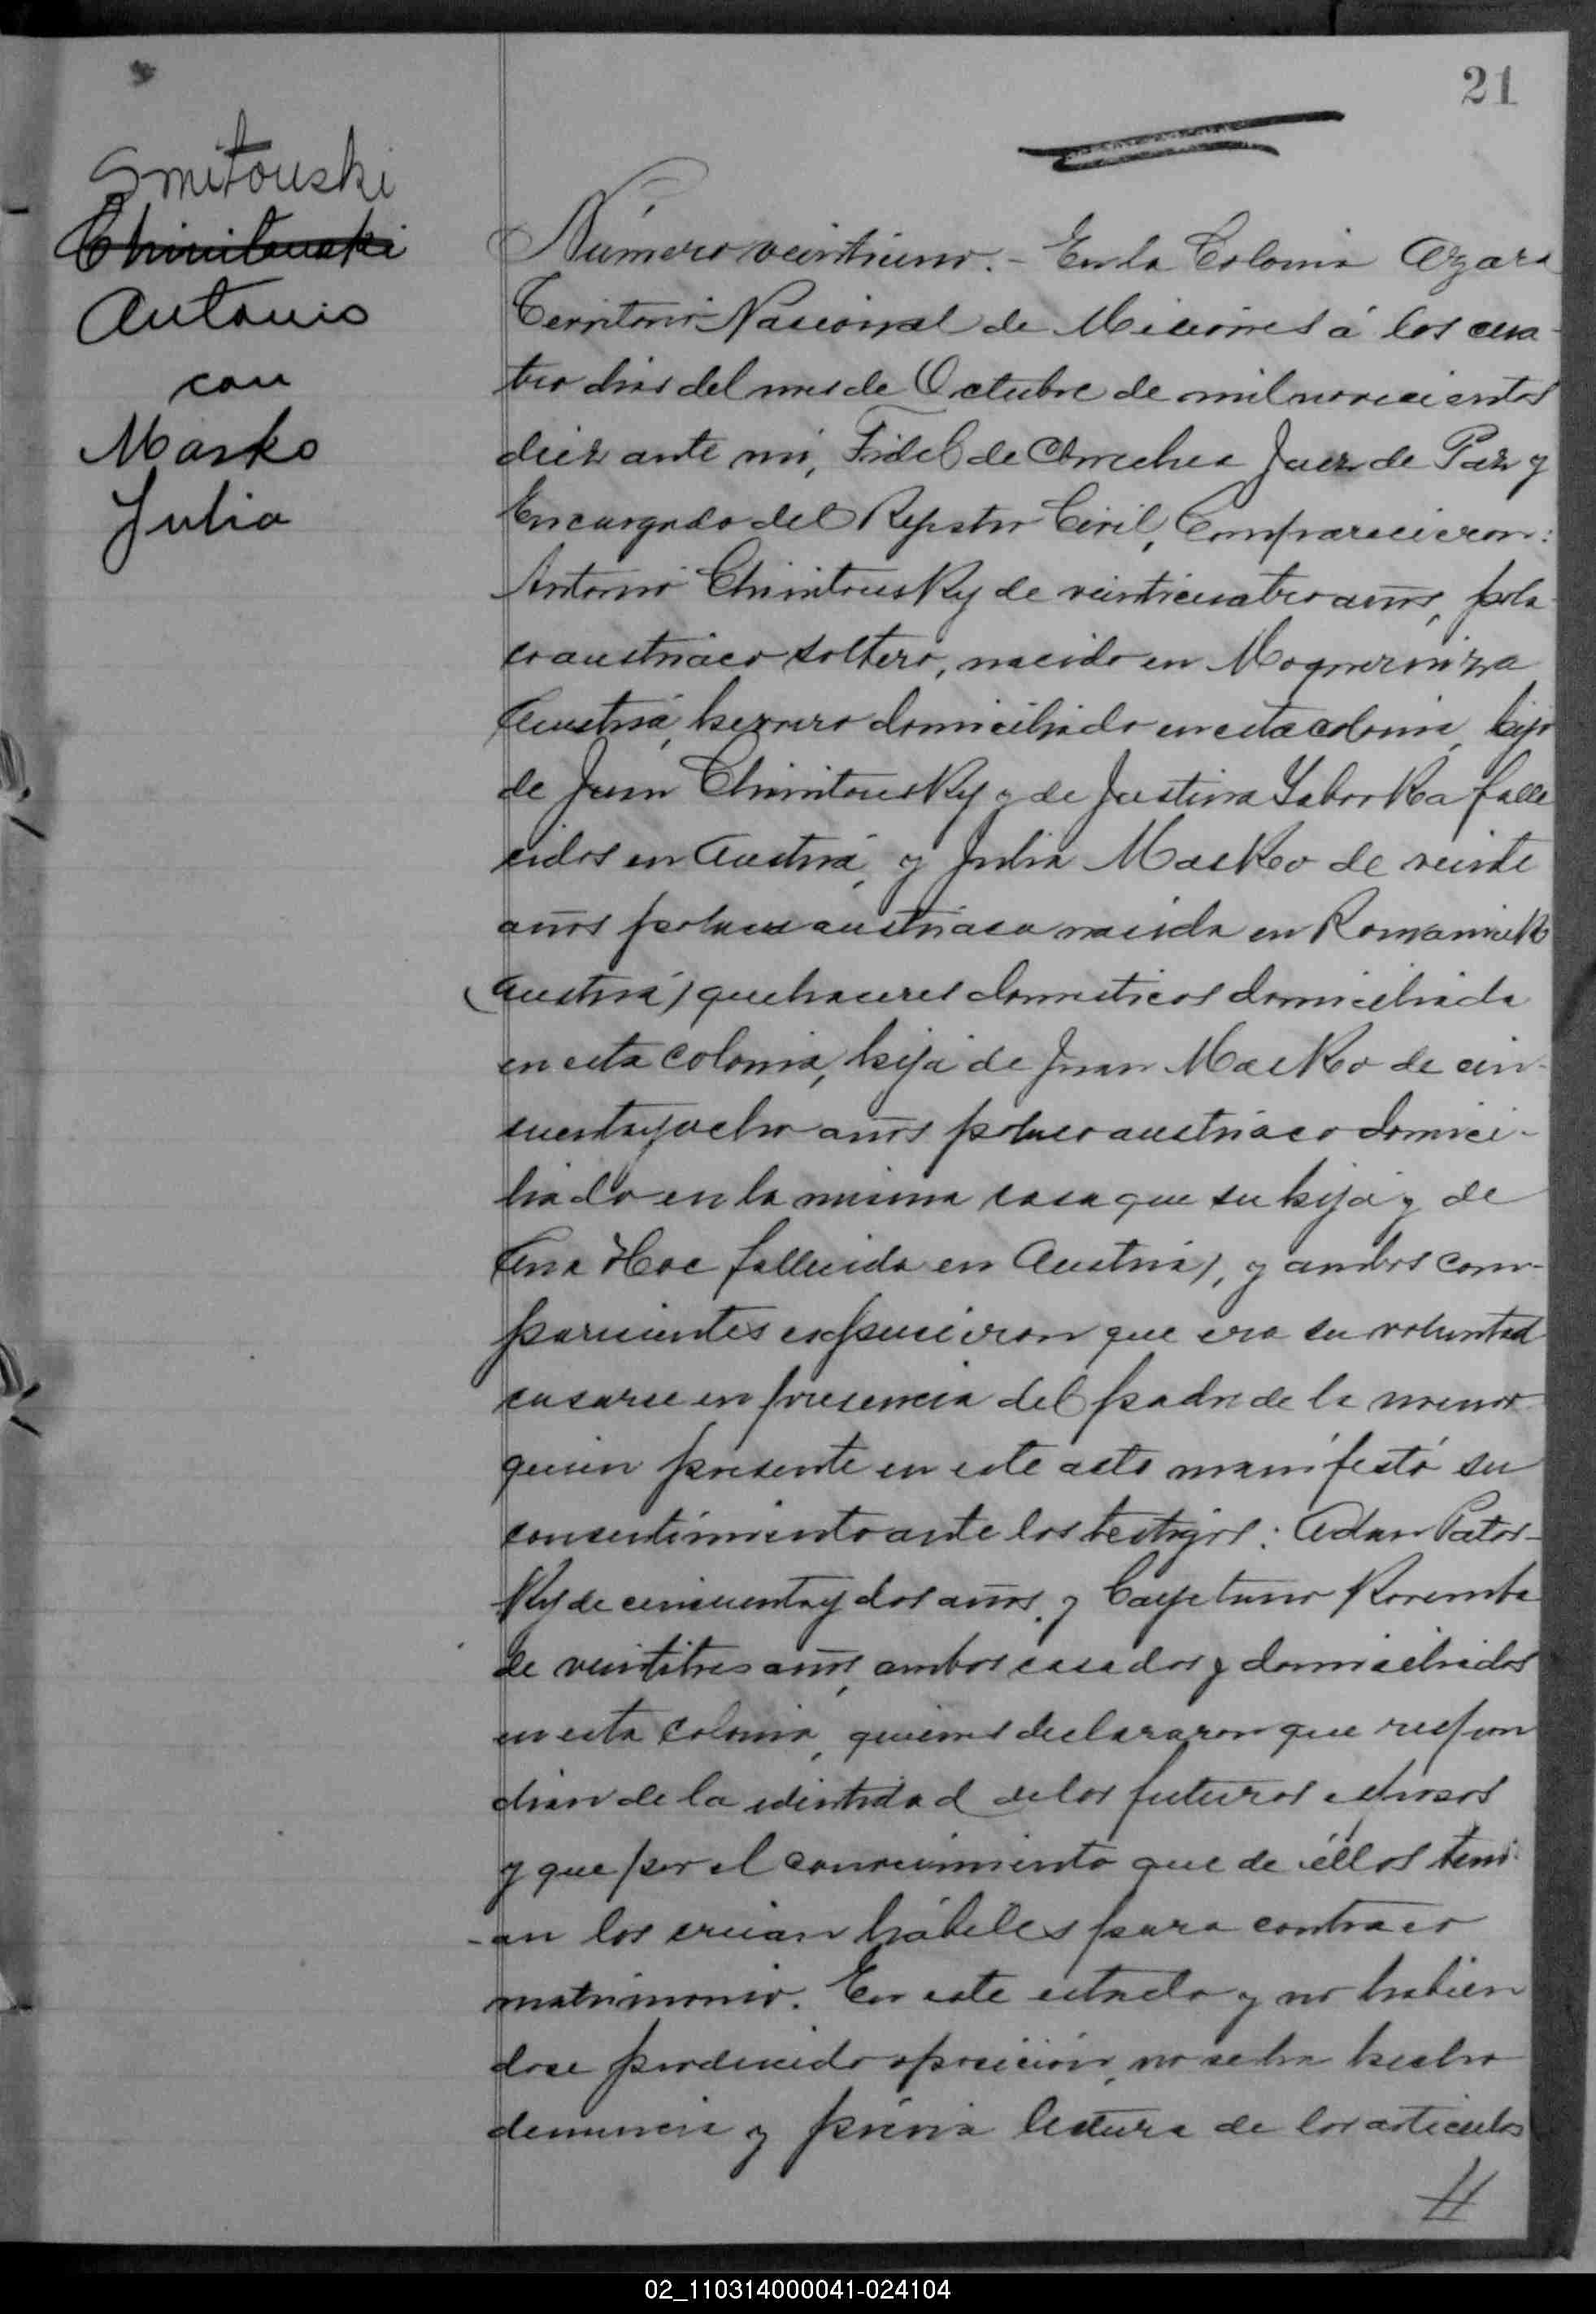 21
Smitouski
Chimitouski
Antonio
con
Masko
Julia
Número veintiuno.- En la Colonia Azara
Territorio Nacional de Misiones á los cua-
tro dias del mes de Octubre de mil novecientos
diez ante mi, Fidel de Juez de Paz y
Encargado del Registro Civil, Comparecieron:
Antonio Chimitousky de veinticuatro años, pola-
co austriaco soltero, nacido en
Austria, herrero domiciliado en esta colonia, hijo
de Juan Chimitousky y de Justina falle
cidos en Austria, y Julia Masko de veinte
años polaca austriaca nacida en Romaniuk
(Austria) quehaceres domesticos domiciliada
en esta colonia, hija de Juan Masko de cin-
cuentayocho años polaco austriaco domici-
liado en la misma casa que su hija y de
Ana Hoc fallecida en Austria), y ambos com-
parecientes expusieron que era su voluntad
casarse en presencia del padre de la menor
quien presente en este acto manifestó su
consentimiento ante los testigos: Adan Patos-
Ky de cincuentaydos años, y Cayetano Koremba
de veintitres años, ambos casados y domiciliados
en esta colonia, quienes declararon que respon
dian de la identidad de los futuros esposos
y que por el conocimiento que de éllos teni-
-an los creian hábiles para contraer
matrimonio. En este estado y no habien
dose producido oposición, no se ha hecho
denuncia y prévia lectura de los articulos
//
02_110314000041-024104